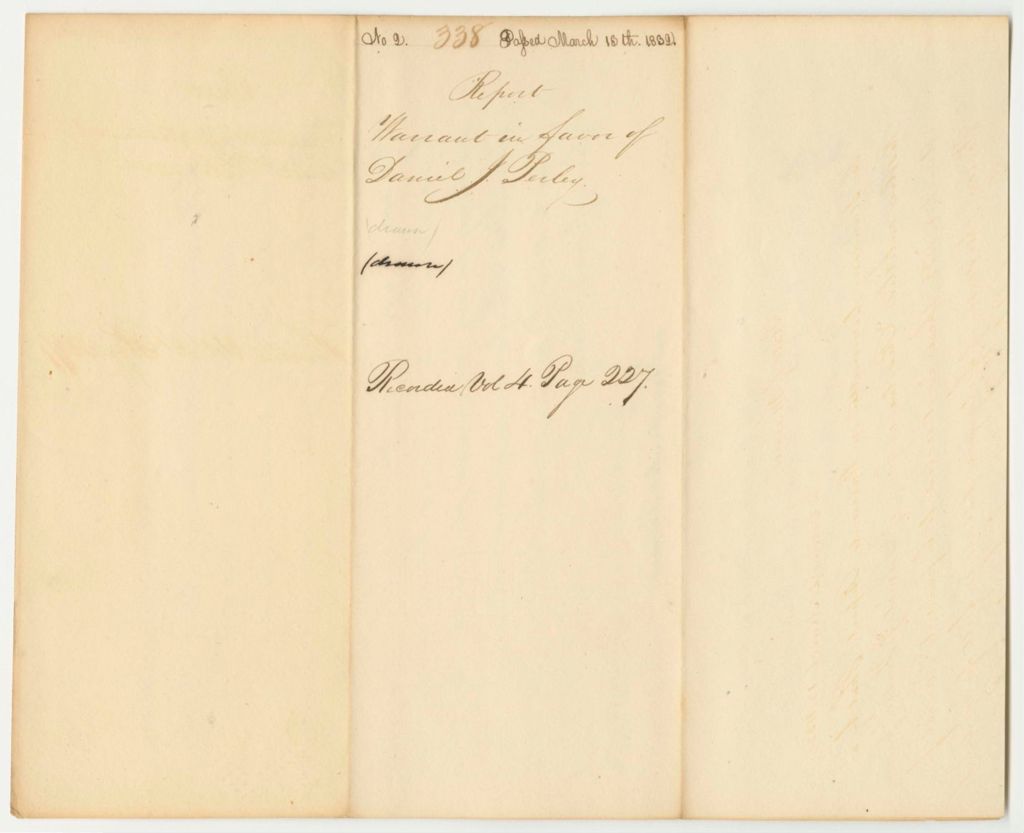 No 2. 338 Passed March 15th. 1832.
Report
Warrant in favor of
Daniel J Perley.
(drawn)
(drawn)
Recorded Vol 4. Page 227.